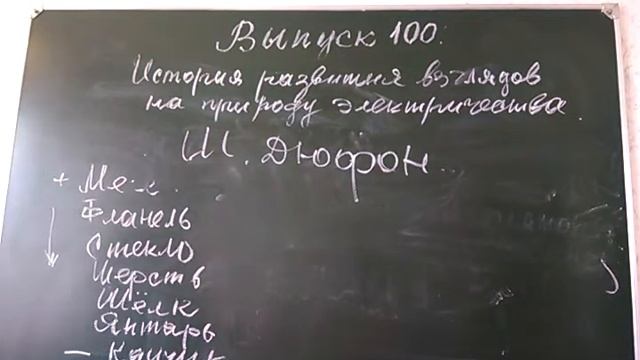 Выпуск 100:
История развития взглядов
на природу электричества.
Ш. Дюфон
+
Фланель
Стекло
Шерсть
Шёлк
Янтарь
—